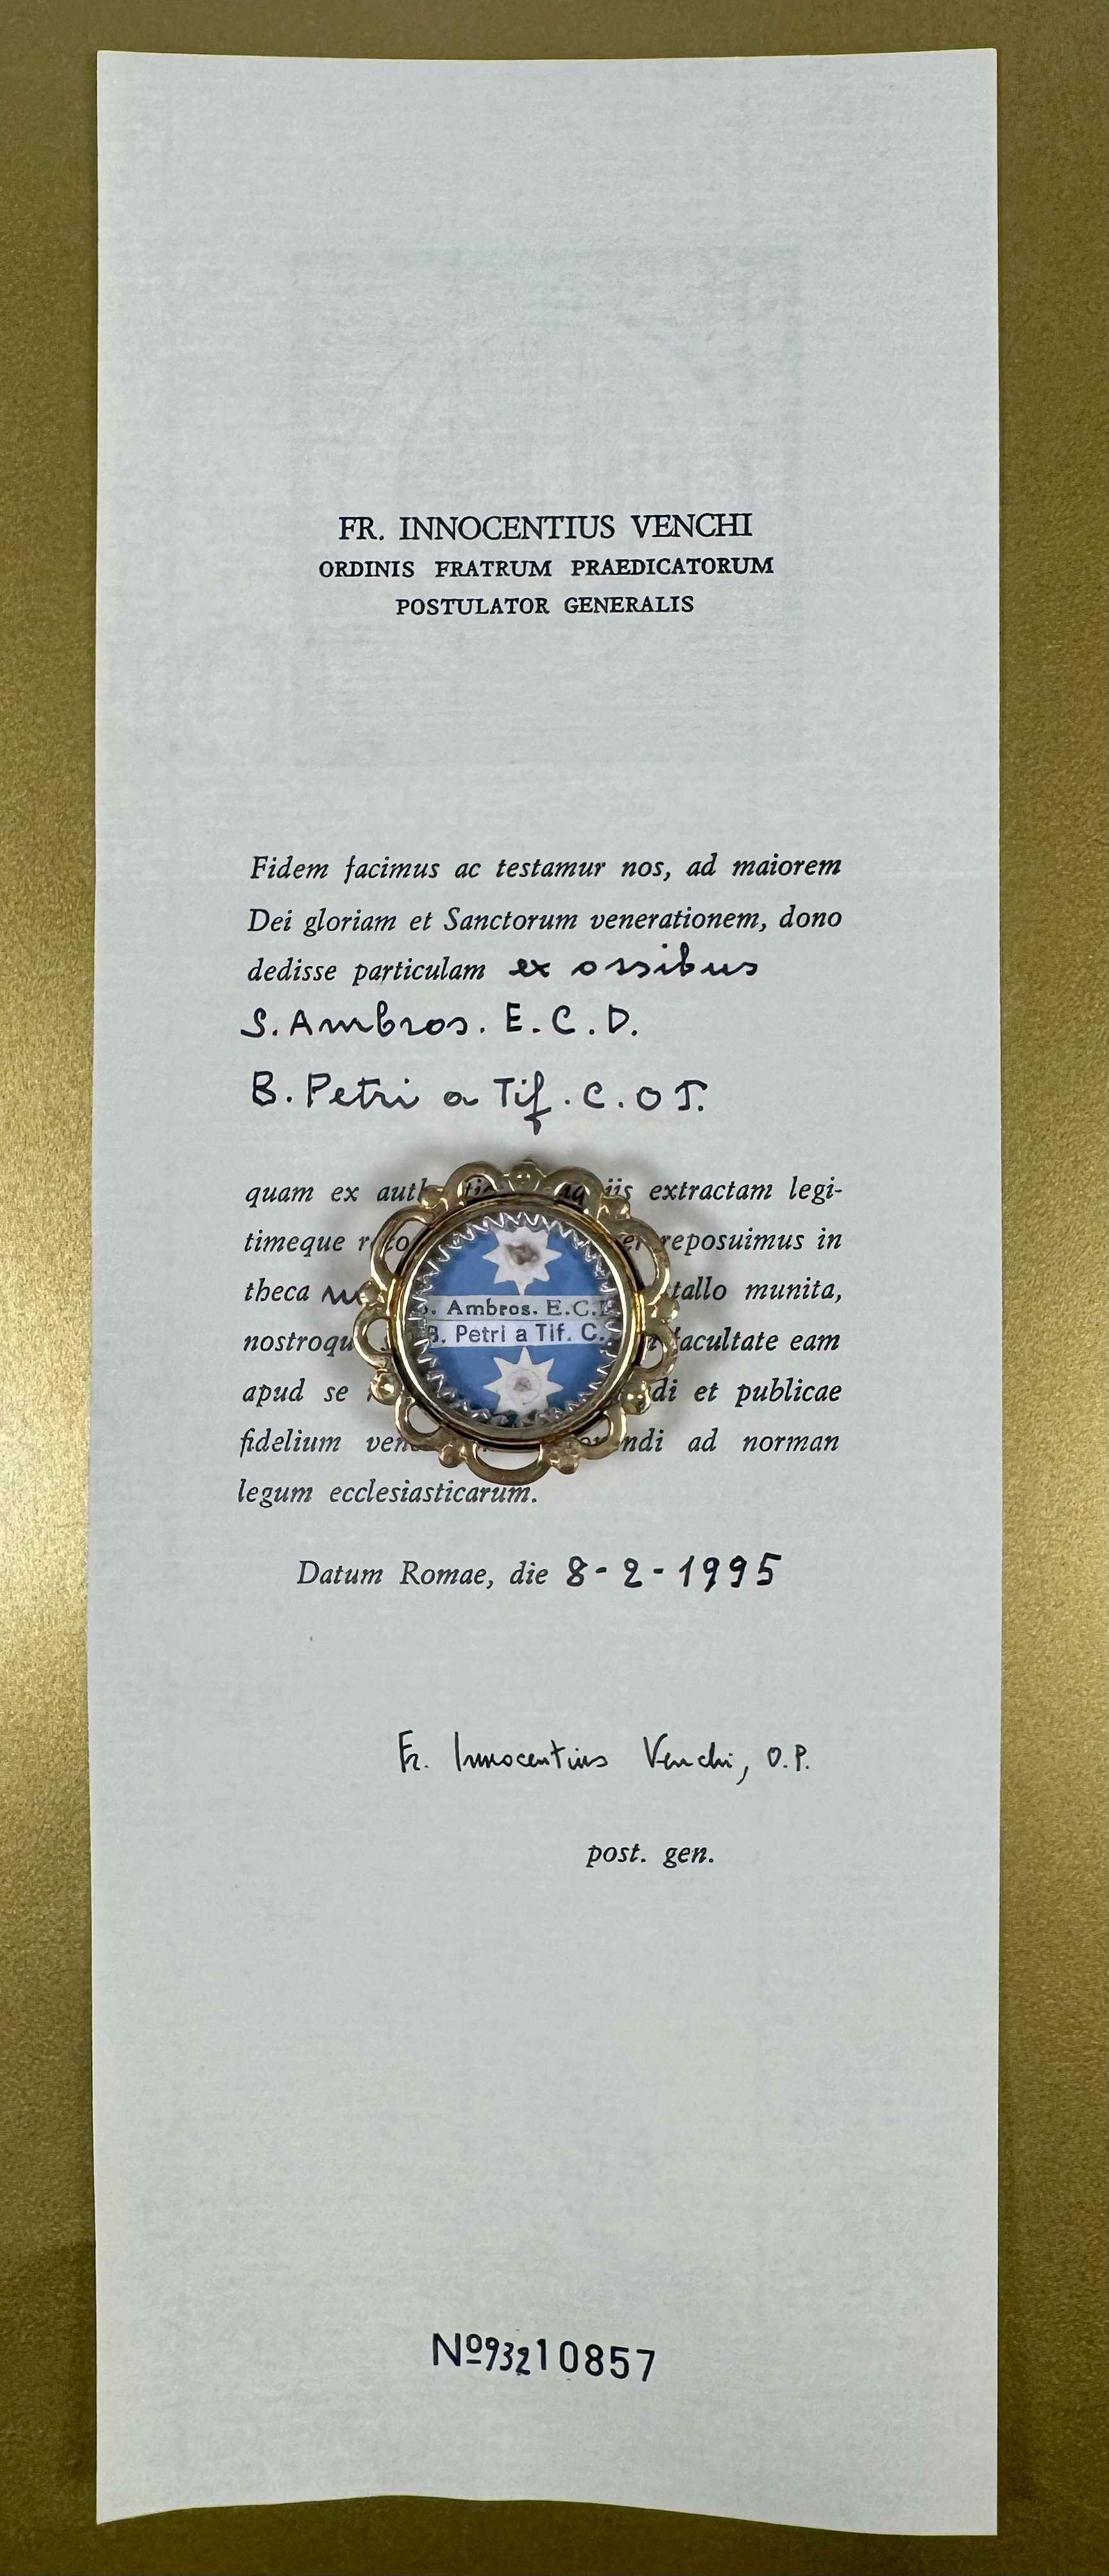 FR. INNOCENTIUS VENCHI
ORDINIS FRATRUM PRAEDICATORUM
POSTULATOR GENERALIS
Fidem facimus ac testamur nos, ad maiorem
Dei gloriam et Sanctorum venerationem, dono
dedisse particulam ex ossibus
S. Ambros. E.C.D.
B. Petri a Tif. C.
quam ex extractam legi-
timeque reposuimus in
theca munita,
Ambros. E.C.
B. Petri a Tif. C.
facultate eam
apud se et publicae
fidelium ad norman
legum ecclesiasticarum.
Datum Romae, die 8-2-1995
Fr. Innocentius Venchi, O.P.
post. gen.
Nº93210857